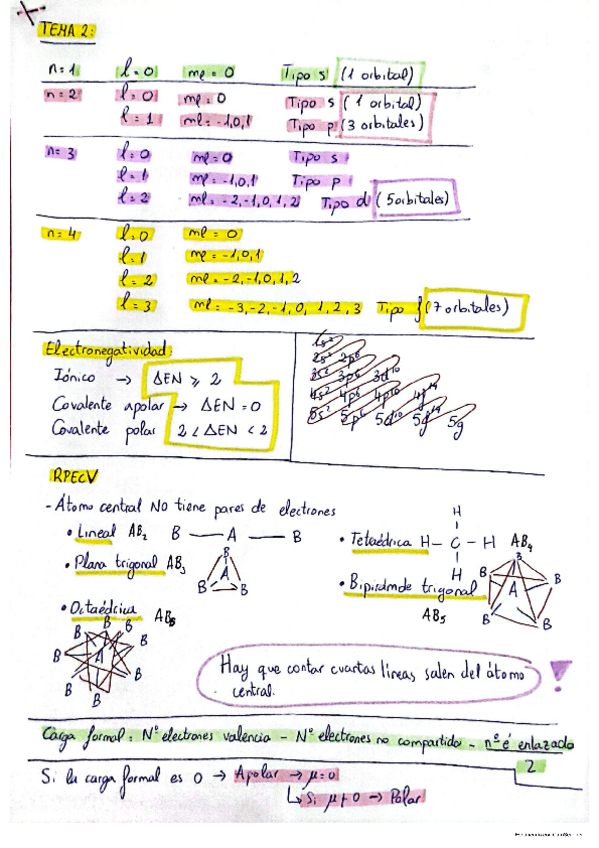 TEMA 2:
n=1 l=0 ml=0 Tipo s (1 orbital)
n=2 l=0 ml=0 Tipo s (1 orbital)
l=1 ml=-1,0,1 Tipo p (3 orbitales)
n=3 l=0 ml=0 Tipo s
l=1 ml=-1,0,1 Tipo p
l=2 ml=-2,-1,0,1,2 Tipo d (5 orbitales)
n=4 l=0 ml=0
l=1 ml=-1,0,1
l=2 ml=-2,-1,0,1,2
l=3 ml=-3,-2,-1,0,1,2,3 Tipo f (7 orbitales)
Electronegatividad:
Iónico → ΔEN ⩾ 2
Covalente apolar → ΔEN = 0
Covalente polar 2 < ΔEN < 2
1s²
2s² 2p⁶
3s² 3p⁶ 3d¹⁰
4s² 4p⁶ 4p¹⁰ 4f¹⁴
5s² 5p⁶ 5d¹⁰ 5f¹⁴ 5g
RPECV
- Átomo central NO tiene pares de electrones
• Lineal AB₂ B — A — B
• Plana trigonal AB₃
B
A
B B
• Octaédrica AB₆
B B B
B A B
B B
B
• Tetaédrica AB₄
H
H - C - H
H
• Bipirámde trigonal
AB₅
B
B B
A
B B
Hay que contar cuartas líneas salen del átomo
central.
!
Carga formal: Nº electrones valencia - Nº electrones no compartido - nº é enlazado
2
Si la carga formal es 0 → Apolar → μ=0
↳ Si μ≠0 → Polar